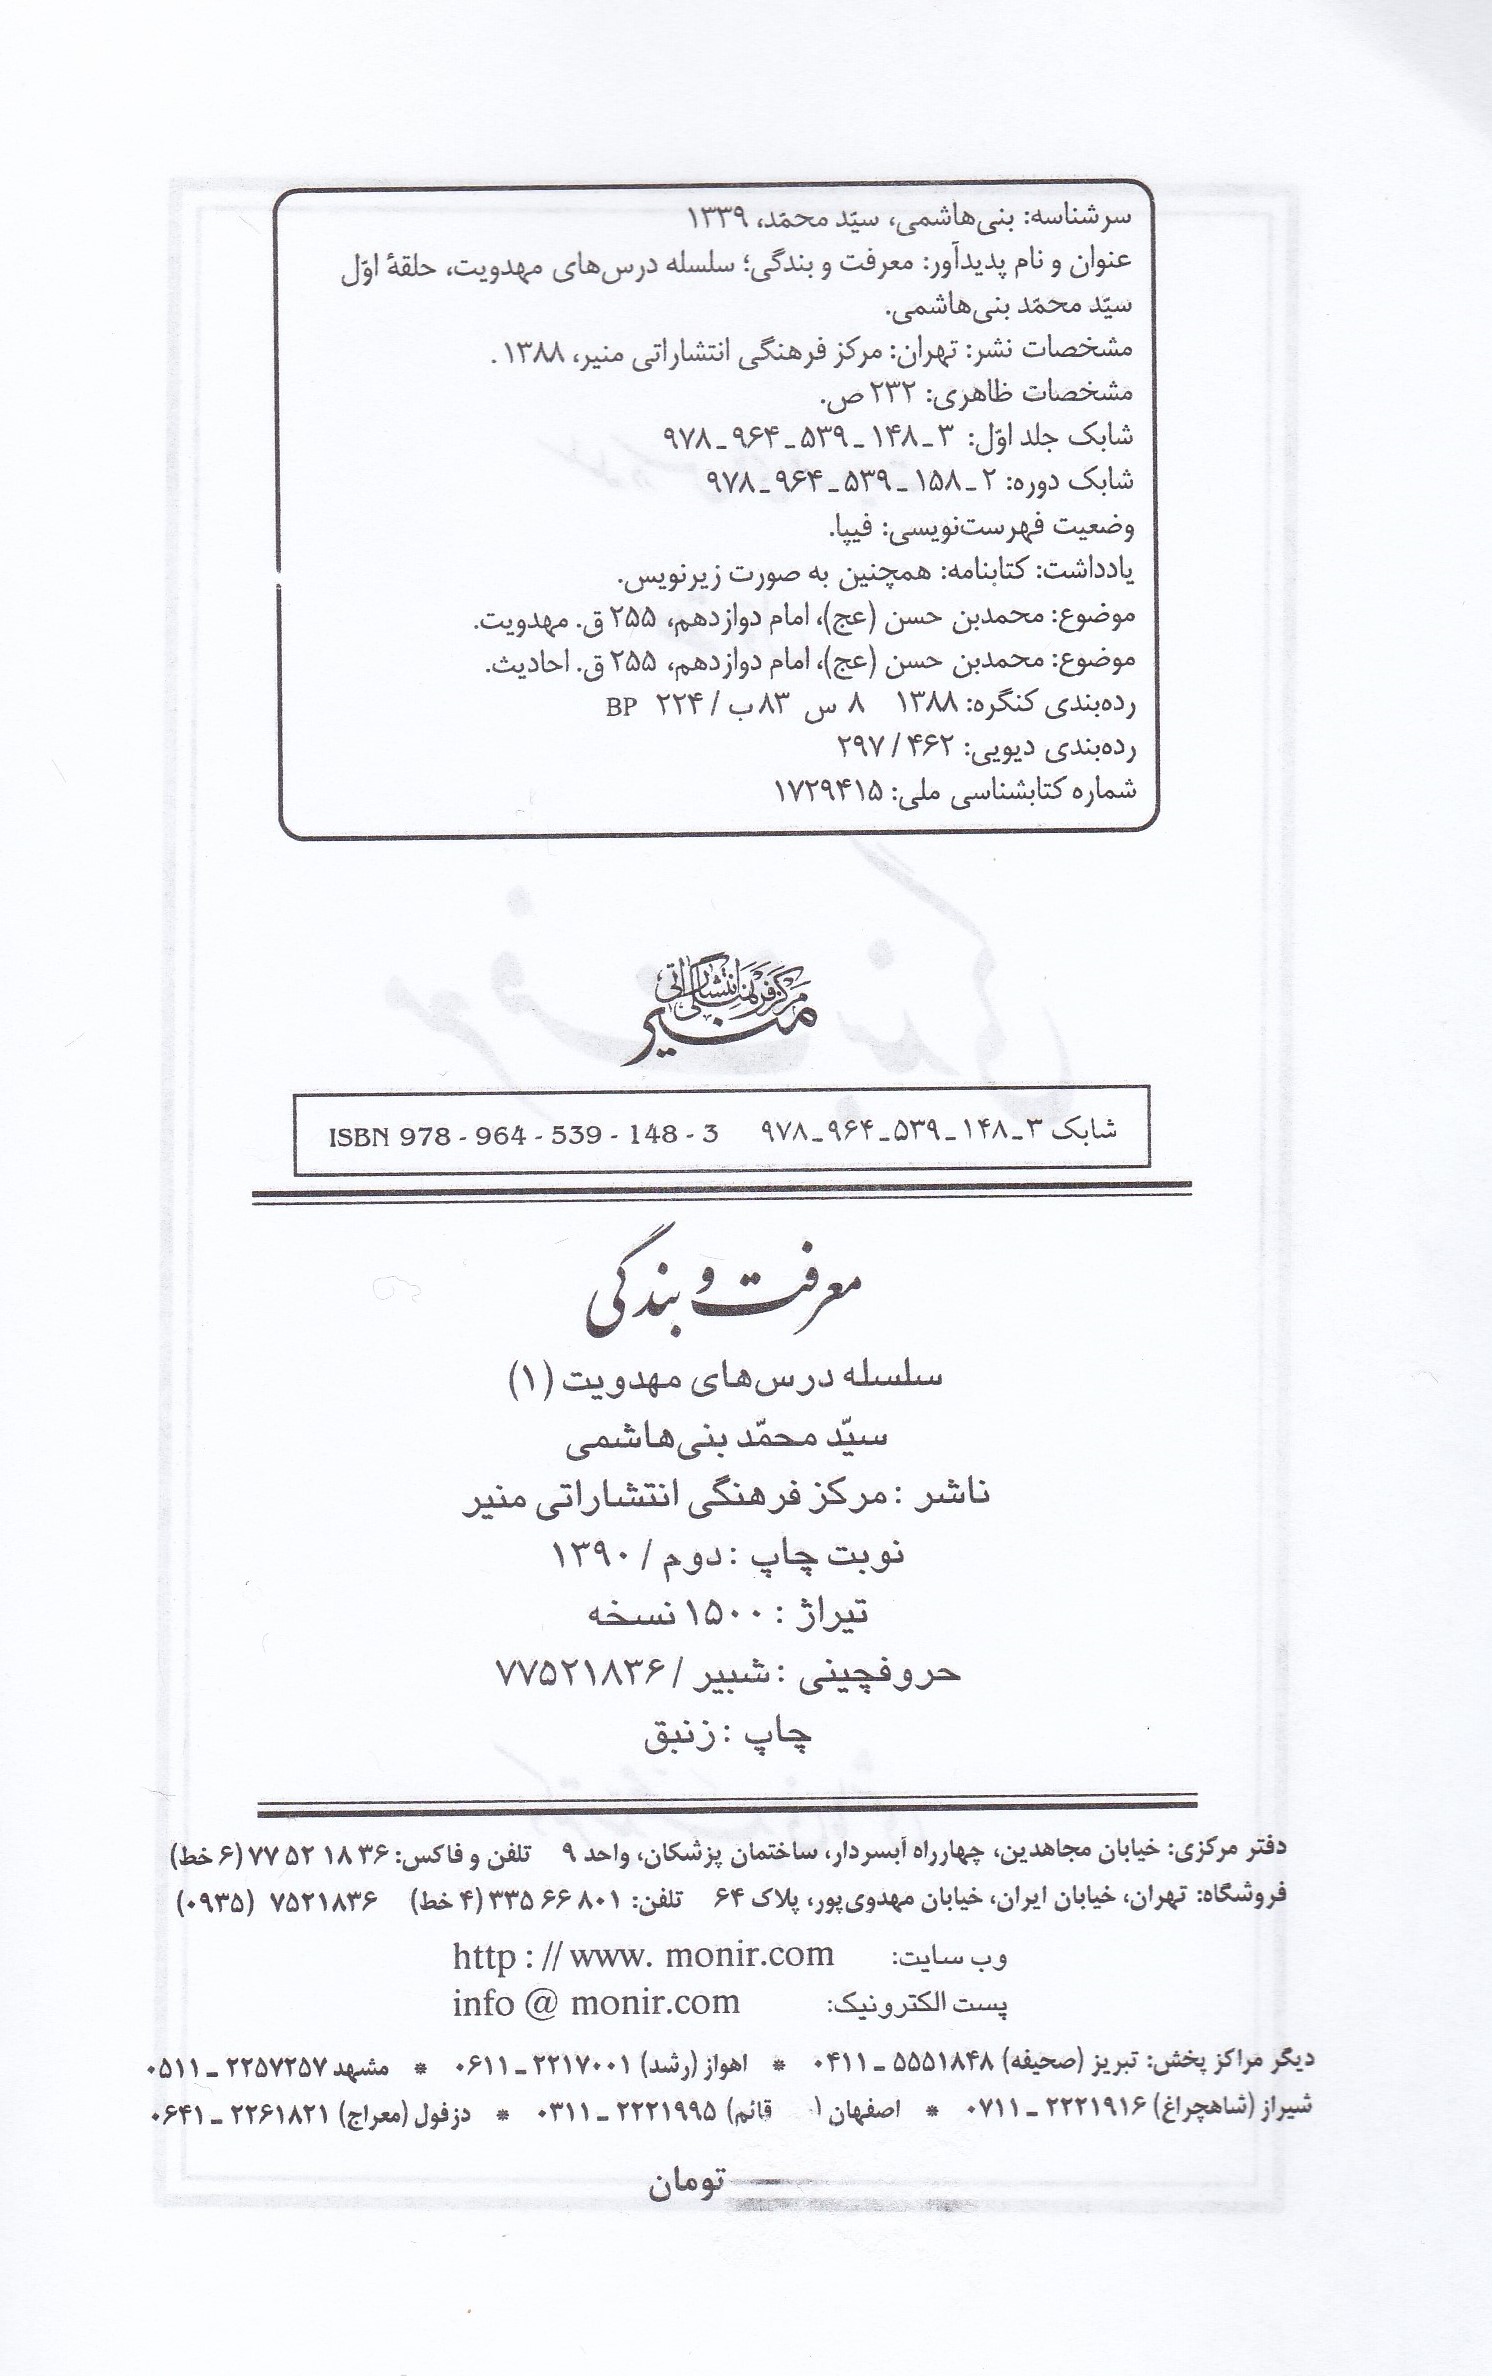 سرشناسه: بنی‌هاشمی، سیّد محمّد، ۱۳۳۹
عنوان و نام پدیدآور: معرفت و بندگی؛ سلسله درس‌های مهدویت، حلقهٔ اوّل
سیّد محمّد بنی‌هاشمی.
مشخصات نشر: تهران: مرکز فرهنگی انتشاراتی منیر، ۱۳۸۸.
مشخصات ظاهری: ۲۳۲ ص.
شابک جلد اوّل: ۳ ـ ۱۴۸ ـ ۵۳۹ ـ ۹۶۴ ـ ۹۷۸
شابک دوره: ۲ ـ ۱۵۸ ـ ۵۳۹ ـ ۹۶۴ ـ ۹۷۸
وضعیت فهرست‌نویسی: فیپا.
یادداشت: کتابنامه: همچنین به صورت زیرنویس.
موضوع: محمدبن حسن (عج)، امام دوازدهم، ۲۵۵ ق. مهدویت.
موضوع: محمدبن حسن (عج)، امام دوازدهم، ۲۵۵ ق. احادیث.
رده‌بندی کنگره: ۱۳۸۸ ۸ س ۸۳ ب / ۲۲۴ BP
رده‌بندی دیویی: ۴۶۲ / ۲۹۷
شماره کتابشناسی ملی: ۱۷۲۹۴۱۵
مرکز فرهنگی انتشاراتی
منیر
شابک ۳ ـ ۱۴۸ ـ ۵۳۹ ـ ۹۶۴ ـ ۹۷۸ ISBN 978 - 964 - 539 - 148 - 3
معرفت و بندگی
سلسله درس‌های مهدویت (۱)
سیّد محمّد بنی‌هاشمی
ناشر : مرکز فرهنگی انتشاراتی منیر
نوبت چاپ : دوم / ۱۳۹۰
تیراژ : ۱۵۰۰ نسخه
حروفچینی : شبیر / ۷۷۵۲۱۸۳۶
چاپ : زنبق
دفتر مرکزی: خیابان مجاهدین، چهارراه آبسردار، ساختمان پزشکان، واحد ۹ تلفن و فاکس: ۳۶ ۱۸ ۵۲ ۷۷ (۶ خط)
فروشگاه: تهران، خیابان ایران، خیابان مهدوی‌پور، پلاک ۶۴ تلفن: ۸۰۱ ۶۶ ۳۳۵ (۴ خط) ۷۵۲۱۸۳۶ (۰۹۳۵)
وب سایت: http : // www. monir.com
پست الکترونیک: info @ monir.com
دیگر مراکز پخش: تبریز (صحیفه) ۵۵۵۱۸۴۸ ـ ۰۴۱۱ * اهواز (رشد) ۲۲۱۷۰۰۱ ـ ۰۶۱۱ * مشهد ۲۲۵۷۲۵۷ ـ ۰۵۱۱
شیراز (شاهچراغ) ۲۲۲۱۹۱۶ ـ ۰۷۱۱ * اصفهان ( قائم) ۲۲۲۱۹۹۵ ـ ۰۳۱۱ * دزفول (معراج) ۲۲۶۱۸۲۱ ـ ۰۶۴۱
تومان